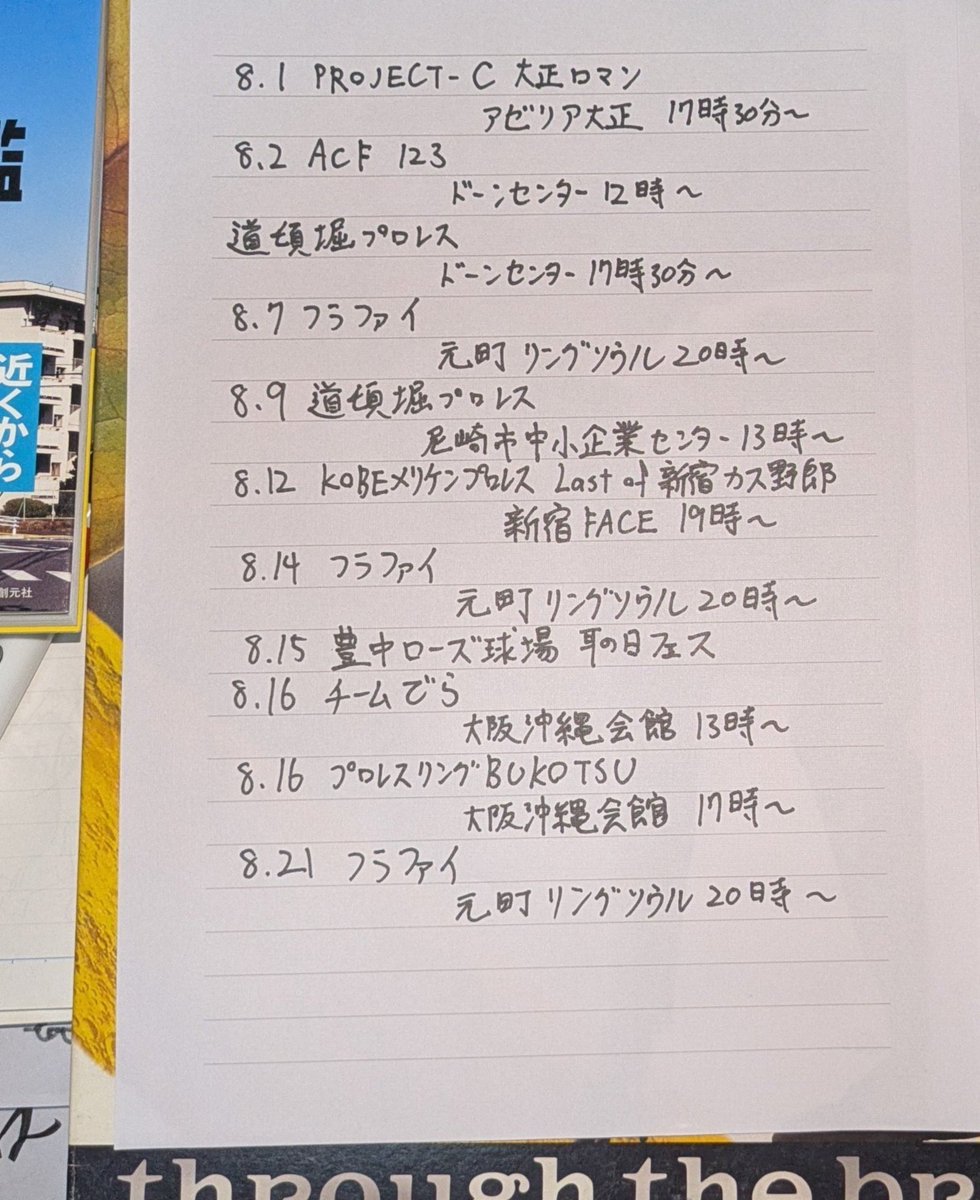 8.1 PROJECT-C 大正ロマン
アビリア大正 17時30分〜
8.2 ACF 123
ドーンセンター 12時〜
道頓堀プロレス
ドーンセンター 17時30分〜
8.7 フラファイ
元町 リングソウル 20時〜
8.9 道頓堀プロレス
尼崎市中小企業センター 13時〜
8.12 KOBEメリケンプロレス Last of 新宿カス野郎
新宿FACE 19時〜
8.14 フラファイ
元町 リングソウル 20時〜
8.15 豊中ローズ球場 耳の日フェス
8.16 チームでら
大阪沖縄会館 13時〜
8.16 プロレスリングBUKOTSU
大阪沖縄会館 17時〜
8.21 フラファイ
元町 リングソウル 20時〜
近くから
創元社
through the